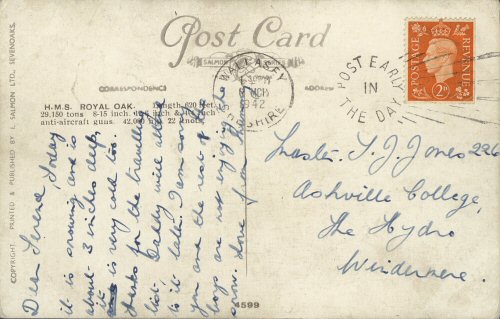 Post Card
SALMON SERIES
CORRESPONDENCE
ADDRESS
COPYRIGHT. PRINTED & PUBLISHED BY J. SALMON LTD., SEVENOAKS.
H.M.S. ROYAL OAK. Length 620 feet.
29,150 tons 8-15 inch. inch &
anti-aircraft guns. 42,000 22 knots.
4599
WALLASEY
1942
CHESHIRE
POST EARLY
IN
THE DAY
POSTAGE
REVENUE
2D
Dear Today
it is snowing and is
about 3 inches deep,
it is very cold too.
Thanks for the travelling
list, Daddy will attend
to it later. I am sorry
you and the rest of the
boys are not enjoying the
snow. Love from Mummy
Master. T. J. Jones 226
Ashville College,
The Hydro
Windermere.